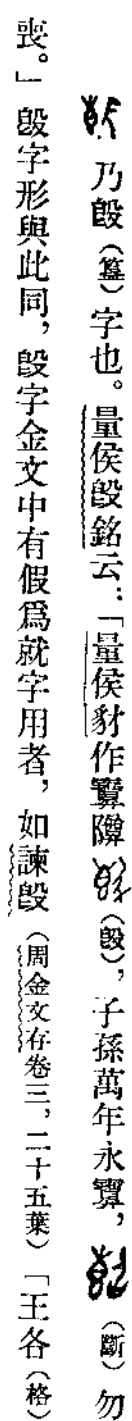 乃𣪘（簋）字也。量侯𣪘銘云：「量侯豺作寶隣（𣪘），子孫萬年永寶，（斷）勿
喪。」𣪘字形與此同，𣪘字金文中有假爲就字用者，如諫𣪘（周金文存卷三，二十五葉）「王各（格）